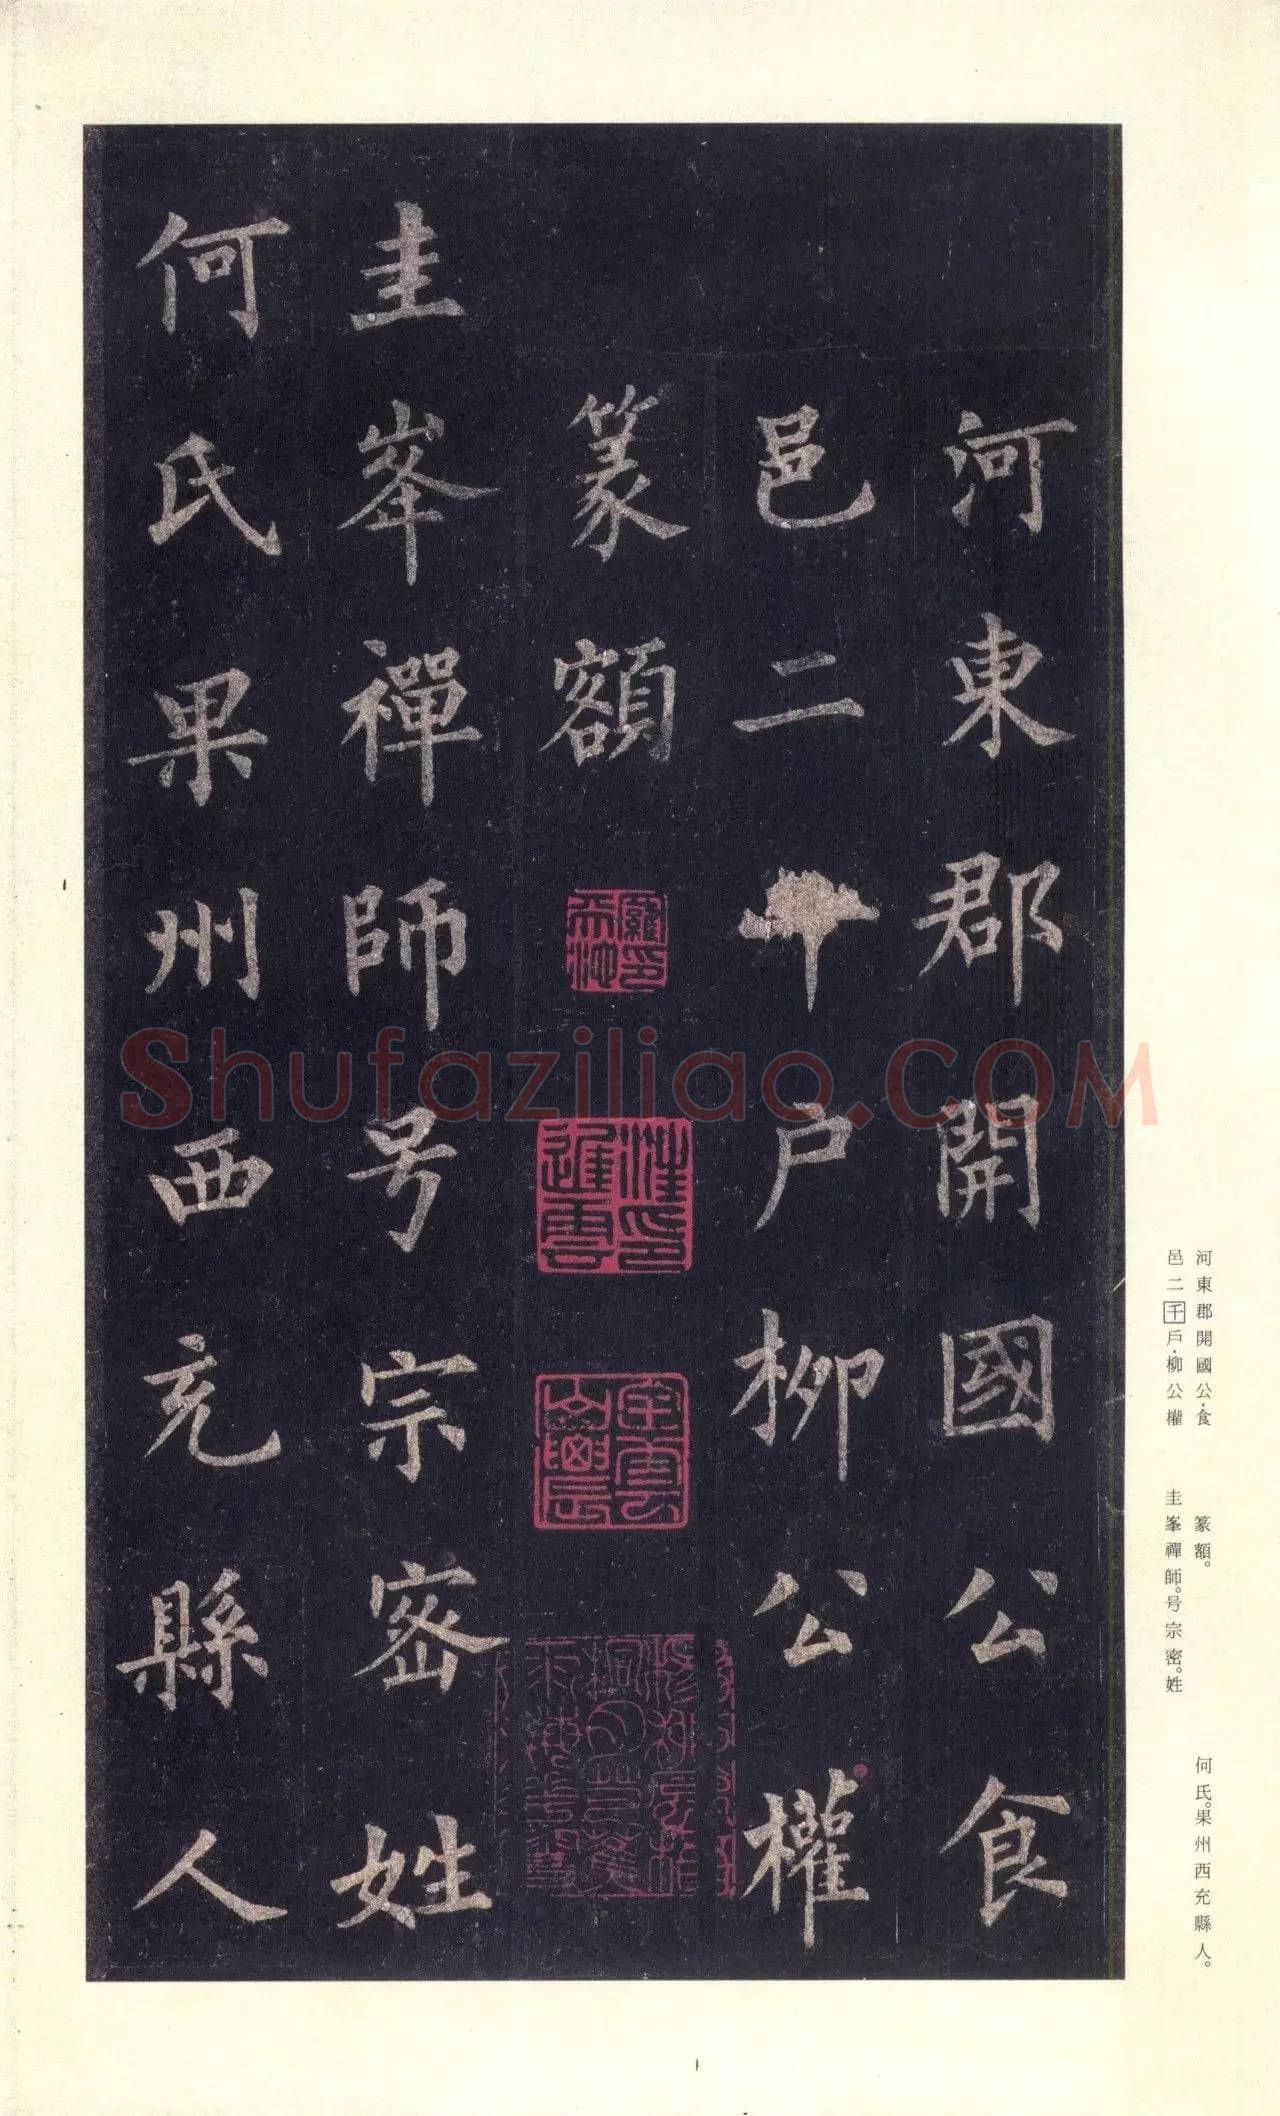 河東郡開國公食
邑二千戶柳公權
篆額
圭峯禪師号宗密姓
何氏果州西充縣人
Shufaziliao.COM
河東郡開國公·食
邑二千戶·柳公權
篆額。
圭峯禪師。号宗密。姓
何氏。果州西充縣人。